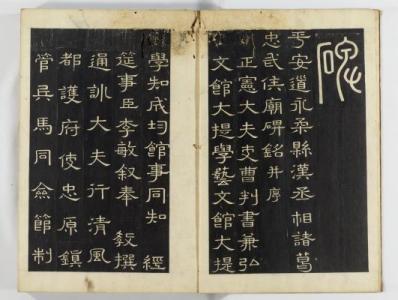 碑
平安道永柔縣漢丞相諸葛
忠武侯廟碑銘并序
正憲大夫吏曹判書兼弘
文館大提學藝文館大提
學知成均館事同知 經
筵事臣李敏叙奉 敎撰
通訓大夫行清風
都護府使忠原鎭
管兵馬同僉節制